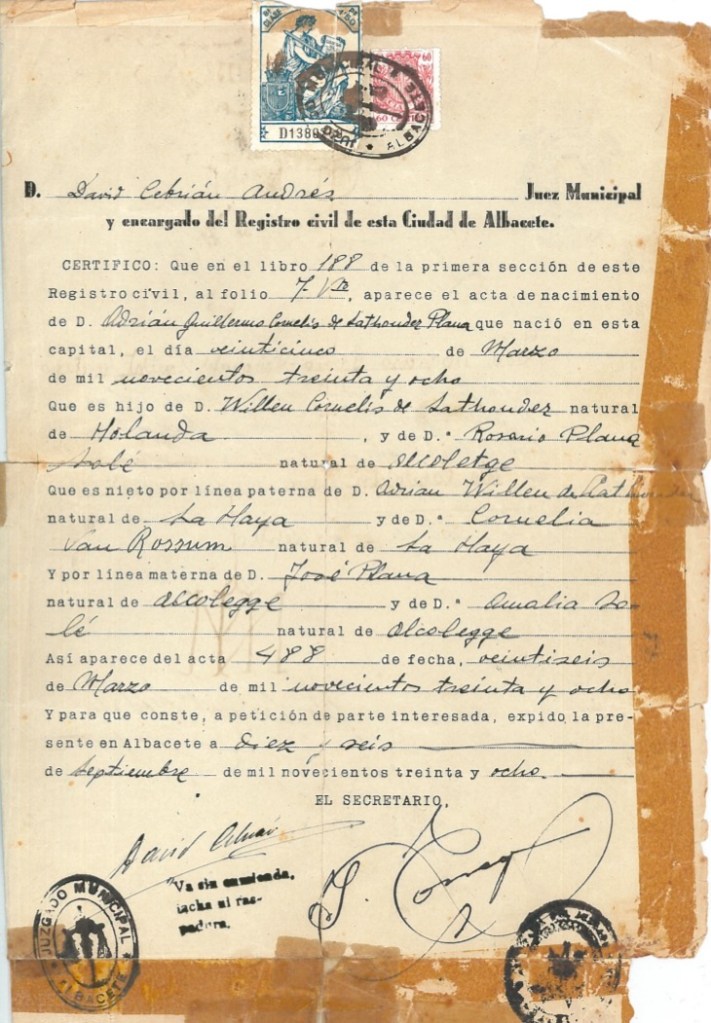 D1389
60
JUZGADO MUNICIPAL ALBACETE
D. David Cebrián Andrés Juez Municipal
y encargado del Registro civil de esta Ciudad de Albacete.
CERTIFICO: Que en el libro 188 de la primera sección de este
Registro civil, al folio 7 Vto, aparece el acta de nacimiento
de D. Adrián Guillermo Cornelis de Lathouder Plana que nació en esta
capital, el día veinticinco de Marzo
de mil novecientos treinta y ocho
Que es hijo de D. Willen Cornelis de Lathouder natural
de Holanda, y de D.ª Rosario Plana
Solé natural de Alcoletge
Que es nieto por línea paterna de D. Adrian Willen de Lathouder
natural de La Haya y de D.ª Cornelia
Van Rossum natural de La Haya
Y por línea materna de D. José Plana
natural de Alcolegge y de D.ª Amalia So-
lé natural de Alcolegge
Así aparece del acta 488 de fecha, veintiseis
de Marzo de mil novecientos treinta y ocho
Y para que conste, a petición de parte interesada, expido la pre-
sente en Albacete a diez y seis
de Septiembre de mil novecientos treinta y ocho.
EL SECRETARIO,
David Cebrián
Va sin enmienda,
tacha ni ras-
padura.
JUZGADO MUNICIPAL
ALBACETE